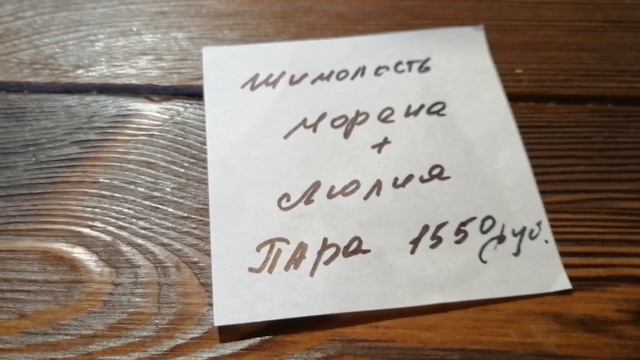 Жимолость
Морена
+
Люлия
Пара 1550 руб.